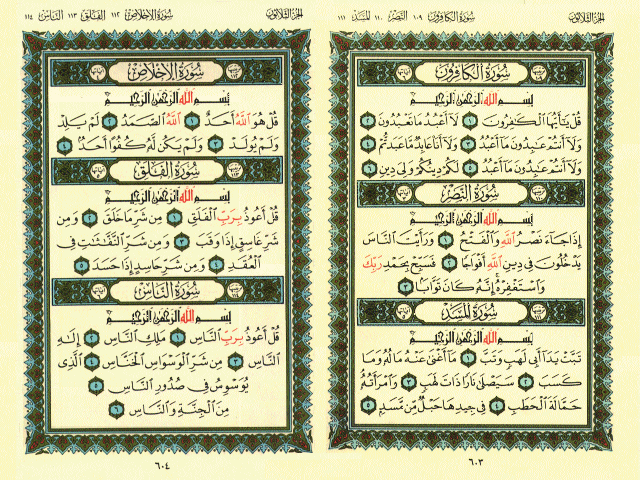 الجزء الثلاثون
سورة الكافرون ١٠٩ النصر ١١٠ المسد ١١١
سُورَةُ الكَافِرُونَ
بِسْمِ اللَّهِ الرَّحْمَٰنِ الرَّحِيمِ
قُلْ يَٰٓأَيُّهَا ٱلْكَٰفِرُونَ ١ لَآ أَعْبُدُ مَا تَعْبُدُونَ ٢
وَلَآ أَنتُمْ عَٰبِدُونَ مَآ أَعْبُدُ ٣ وَلَآ أَنَا۠ عَابِدٌ مَّا عَبَدتُّمْ ٤
وَلَآ أَنتُمْ عَٰبِدُونَ مَآ أَعْبُدُ ٥ لَكُمْ دِينُكُمْ وَلِيَ دِينِ ٦
سُورَةُ النَّصْرِ
بِسْمِ اللَّهِ الرَّحْمَٰنِ الرَّحِيمِ
إِذَا جَآءَ نَصْرُ ٱللَّهِ وَٱلْفَتْحُ ١ وَرَأَيْتَ ٱلنَّاسَ
يَدْخُلُونَ فِى دِينِ ٱللَّهِ أَفْوَاجًا ٢ فَسَبِّحْ بِحَمْدِ رَبِّكَ
وَٱسْتَغْفِرْهُ إِنَّهُۥ كَانَ تَوَّابًۢا ٣
سُورَةُ المَسَدِ
بِسْمِ اللَّهِ الرَّحْمَٰنِ الرَّحِيمِ
تَبَّتْ يَدَآ أَبِى لَهَبٍ وَتَبَّ ١ مَآ أَغْنَىٰ عَنْهُ مَالُهُۥ وَمَا
كَسَبَ ٢ سَيَصْلَىٰ نَارًا ذَاتَ لَهَبٍ ٣ وَٱمْرَأَتُهُۥ
حَمَّالَةَ ٱلْحَطَبِ ٤ فِى جِيدِهَا حَبْلٌ مِّن مَّسَدٍۭ ٥
٦٠٣
الجزء الثلاثون
سورة الإخلاص ١١٢ الفلق ١١٣ الناس ١١٤
سُورَةُ الإِخْلَاصِ
بِسْمِ اللَّهِ الرَّحْمَٰنِ الرَّحِيمِ
قُلْ هُوَ ٱللَّهُ أَحَدٌ ١ ٱللَّهُ ٱلصَّمَدُ ٢ لَمْ يَلِدْ
وَلَمْ يُولَدْ ٣ وَلَمْ يَكُن لَّهُۥ كُفُوًا أَحَدٌۢ ٤
سُورَةُ الفَلَقِ
بِسْمِ اللَّهِ الرَّحْمَٰنِ الرَّحِيمِ
قُلْ أَعُوذُ بِرَبِّ ٱلْفَلَقِ ١ مِن شَرِّ مَا خَلَقَ ٢ وَمِن
شَرِّ غَاسِقٍ إِذَا وَقَبَ ٣ وَمِن شَرِّ ٱلنَّفَّٰثَٰتِ فِى
ٱلْعُقَدِ ٤ وَمِن شَرِّ حَاسِدٍ إِذَا حَسَدَ ٥
سُورَةُ النَّاسِ
بِسْمِ اللَّهِ الرَّحْمَٰنِ الرَّحِيمِ
قُلْ أَعُوذُ بِرَبِّ ٱلنَّاسِ ١ مَلِكِ ٱلنَّاسِ ٢ إِلَٰهِ
ٱلنَّاسِ ٣ مِن شَرِّ ٱلْوَسْوَاسِ ٱلْخَنَّاسِ ٤ ٱلَّذِى
يُوَسْوِسُ فِى صُدُورِ ٱلنَّاسِ ٥
مِنَ ٱلْجِنَّةِ وَٱلنَّاسِ ٦
٦٠٤